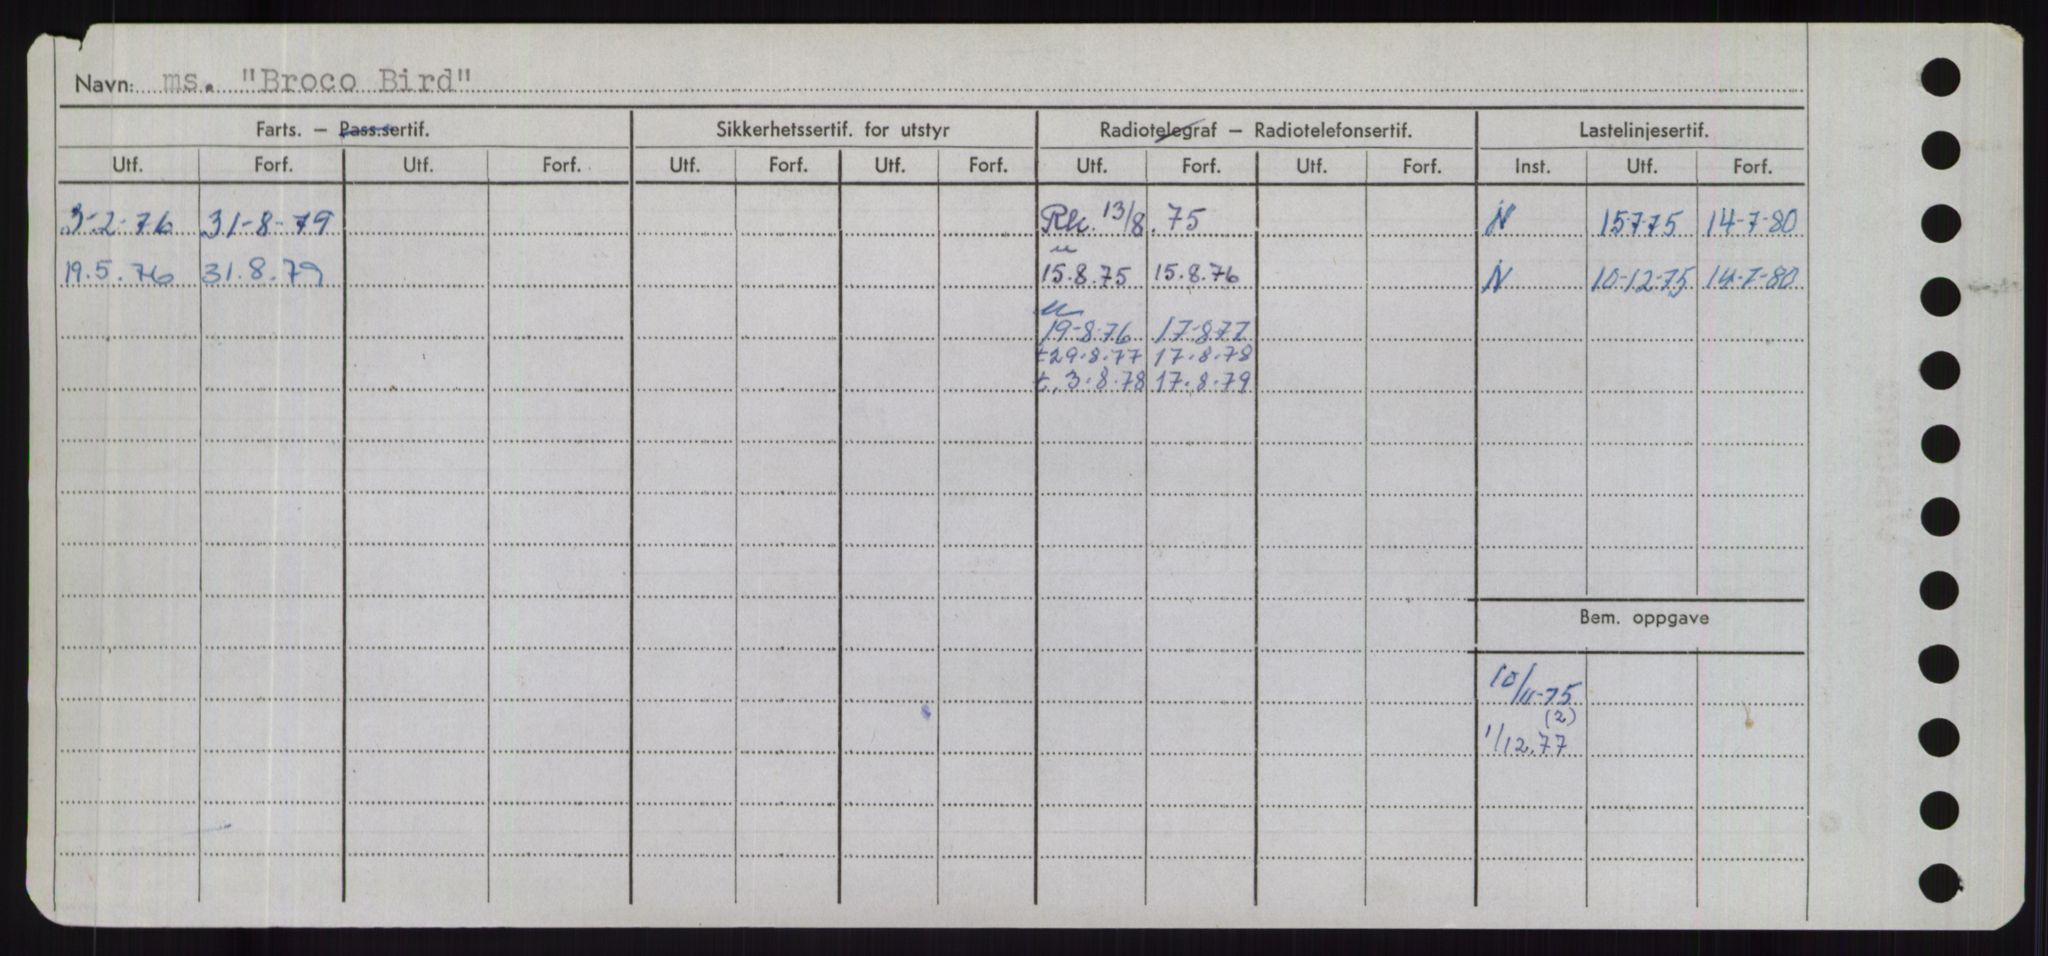 Navn: ms. "Broco Bird"
Farts. — Pass.sertif. Sikkerhetssertif. for utstyr Radiotelegraf — Radiotelefonsertif. Lastelinjesertif.
Utf. Forf. Utf. Forf. Utf. Forf. Utf. Forf. Utf. Forf. Utf. Forf. Inst. Utf. Forf.
3-2-76 31-8-79 Rk. 13/8.75 N 15775 14-7-80
u
19.5.76 31.8.79 15.8.75 15.8.76 N 10-12-75 14-7-80
u
19-8-76 17-8-77
t 29.8.77 17.8.78
t. 3.8.78 17.8.79
Bem. oppgave
10/11-75
(2)
1/12.77